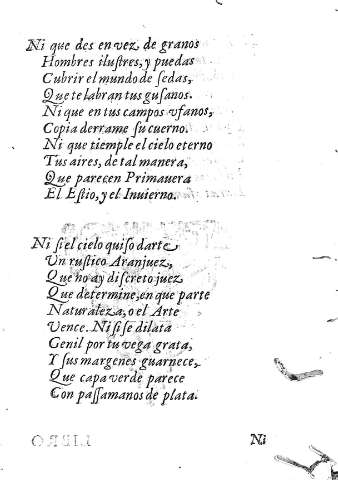 Ni que des en vez de granos
Hombres ilustres, y puedas
Cubrir el mundo de sedas,
Que te labran tus gusanos.
Ni que en tus campos vfanos,
Copia derrame su cuerno.
Ni que tiemple el cielo eterno
Tus aires, de tal manera,
Que parecen Primauera
El Estio, y el Inuierno.
Ni si el cielo quiso darte
Vn rustico Aranjuez,
Que no ay discreto juez
Que determine, en que parte
Naturaleza, o el Arte
Vence. Ni si se dilata
Genil por tu vega grata,
Y sus margenes guarnece,
Que capa verde parece
Con passamanos de plata.
Ni